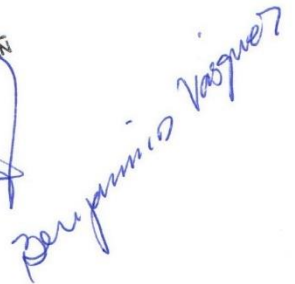 Benjaminio Vásquez